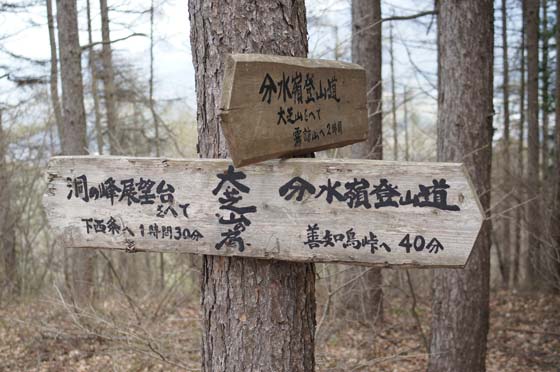 分水嶺登山道
大芝山をへて
霧訪山へ2時間
洞の峰展望台
をへて
下西条へ1時間30分
大芝山
分水嶺登山道
善知鳥峠へ 40分